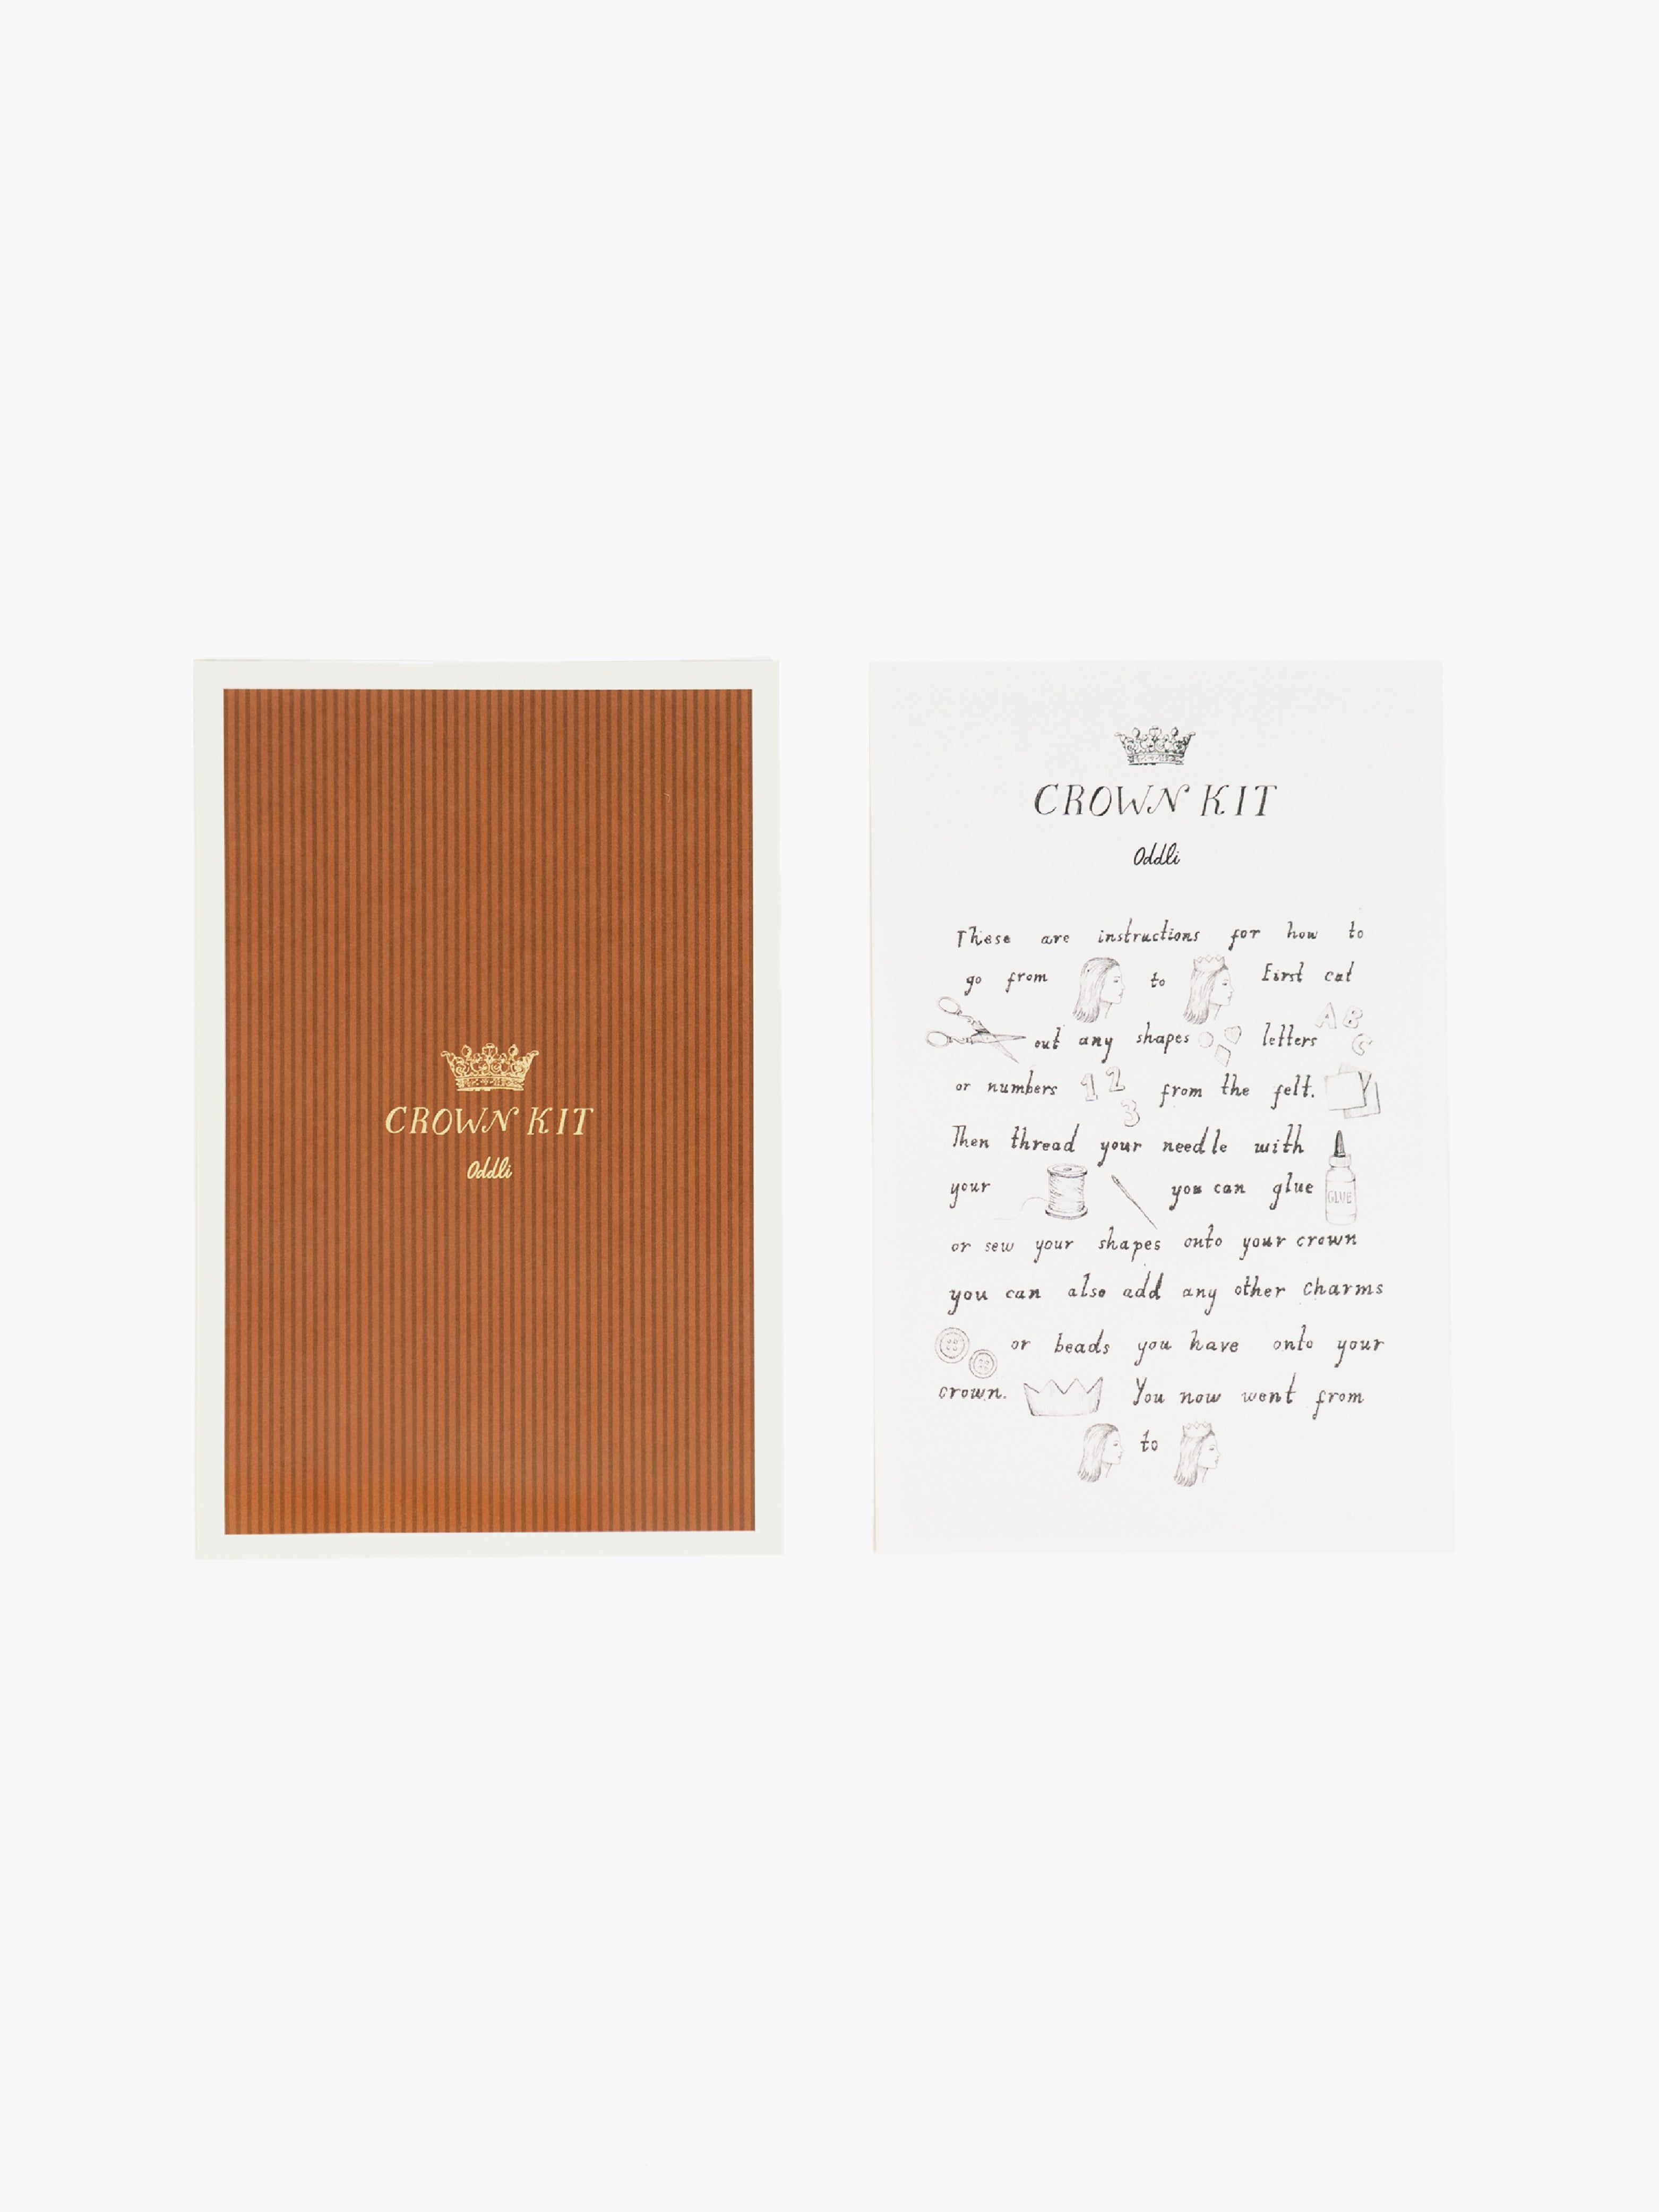 CROWN KIT
Oddli
CROWN KIT
Oddli
These are instructions for how to
go from to First cut
out any shapes letters A B
C
or numbers 1 2
3
from the felt.
Then thread your needle with
your you can glue GLUE
or sew your shapes onto your crown
you can also add any other charms
or beads you have onto your
crown. You now went from
to